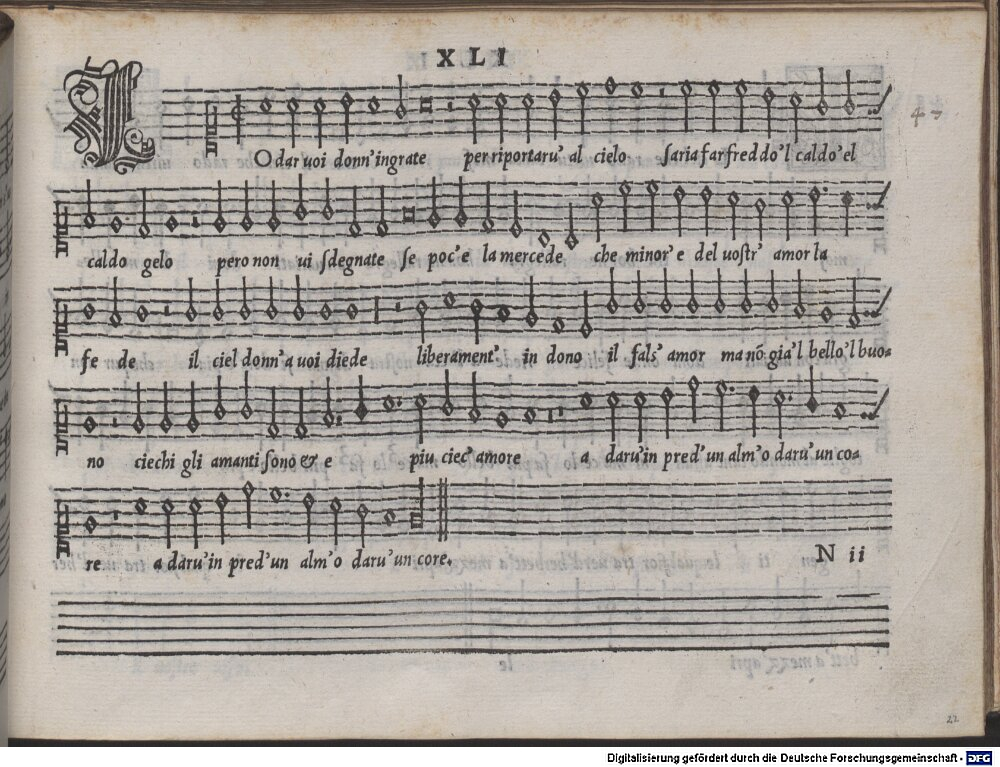 XLI
43
LO dar uoi donn'ingrate per riportaru' al cielo saria far freddo'l caldo'el
caldo gelo pero non ui sdegnate se poc'e la mercede che minor'e del uostr' amor la
fe de il ciel donn'a uoi diede liberament' in dono il fals' amor ma nō gia'l bello'l buo=
no ciechi gli amanti sono & e piu ciec' amore a daru'in pred'un alm'o daru'un co=
re a daru'in pred'un alm'o daru'un core.
N ii
22
Digitalisierung gefördert durch die Deutsche Forschungsgemeinschaft - DFG